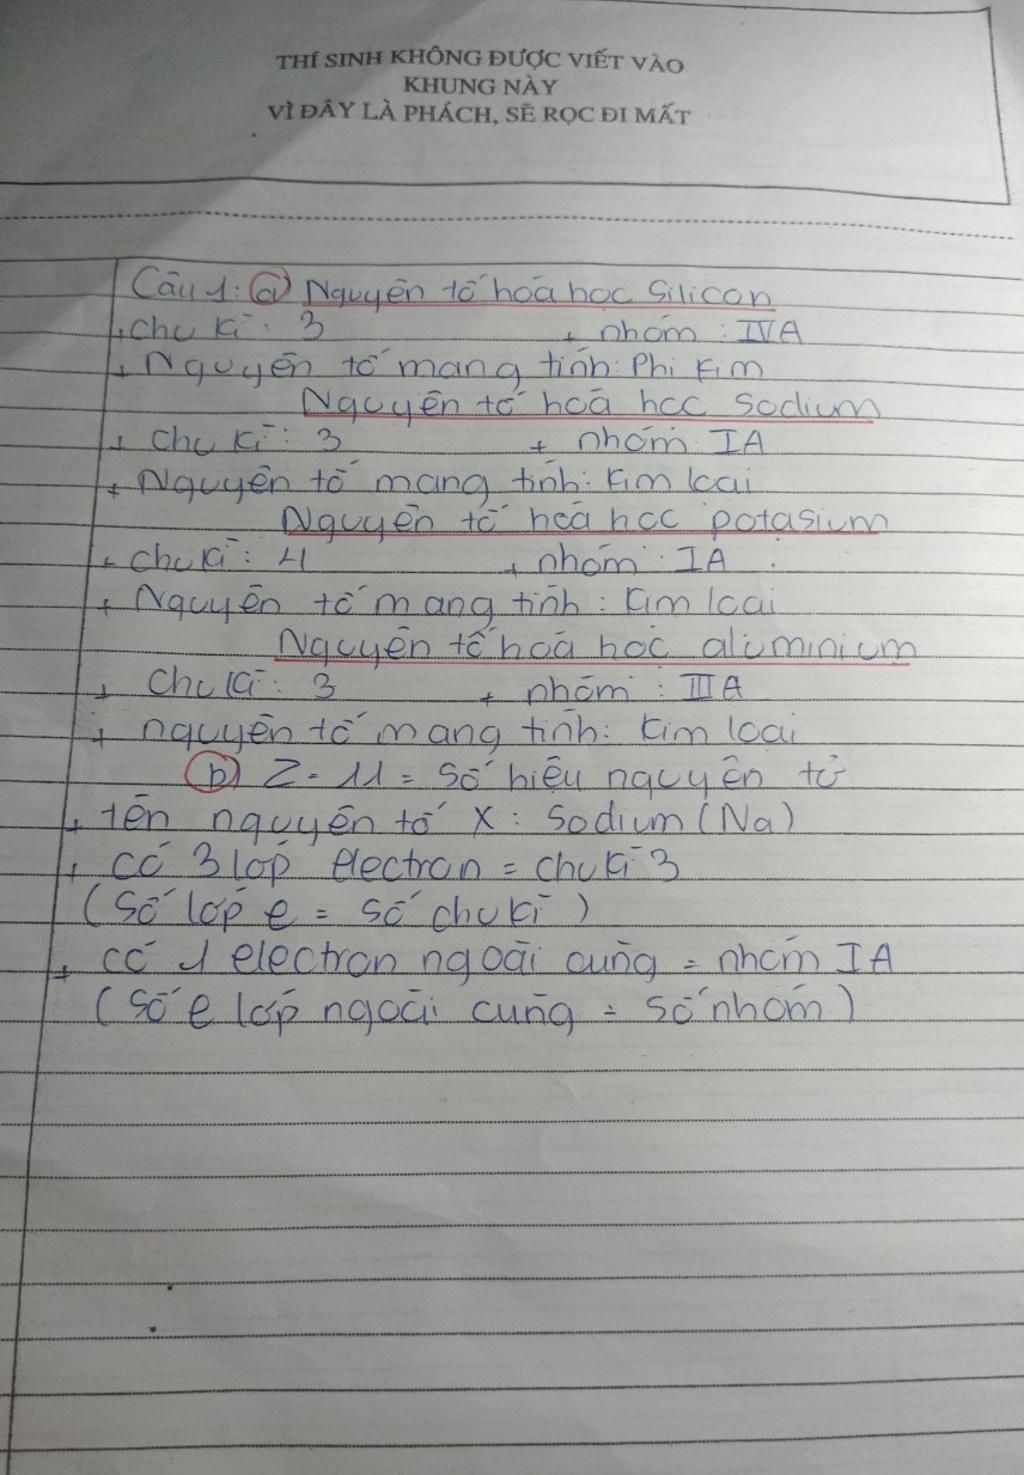 THÍ SINH KHÔNG ĐƯỢC VIẾT VÀO
KHUNG NÀY
VÌ ĐÂY LÀ PHÁCH, SẼ RỌC ĐI MẤT
Câu 1: a) Nguyên tố hoá học Silicon
+ chu kì: 3 + nhóm: IVA
+ Nguyên tố mang tính: Phi kim
Nguyên tố hoá học sodium
+ chu kì: 3 + nhóm: IA
+ Nguyên tố mang tính: kim loại
Nguyên tố hoá học potasium
+ chu kì: 4 + nhóm: IA
+ Nguyên tố mang tính: kim loại
Nguyên tố hoá học aluminium
+ chu kì: 3 + nhóm: IIIA
+ nguyên tố mang tính: kim loại
b) Z = 11 = số hiệu nguyên tử
+ tên nguyên tố X: Sodium (Na)
+ có 3 lớp electron = chu kì 3
(Số lớp e = số chu kì)
+ có 1 electron ngoài cùng = nhóm IA
(Số e lớp ngoài cùng = số nhóm)